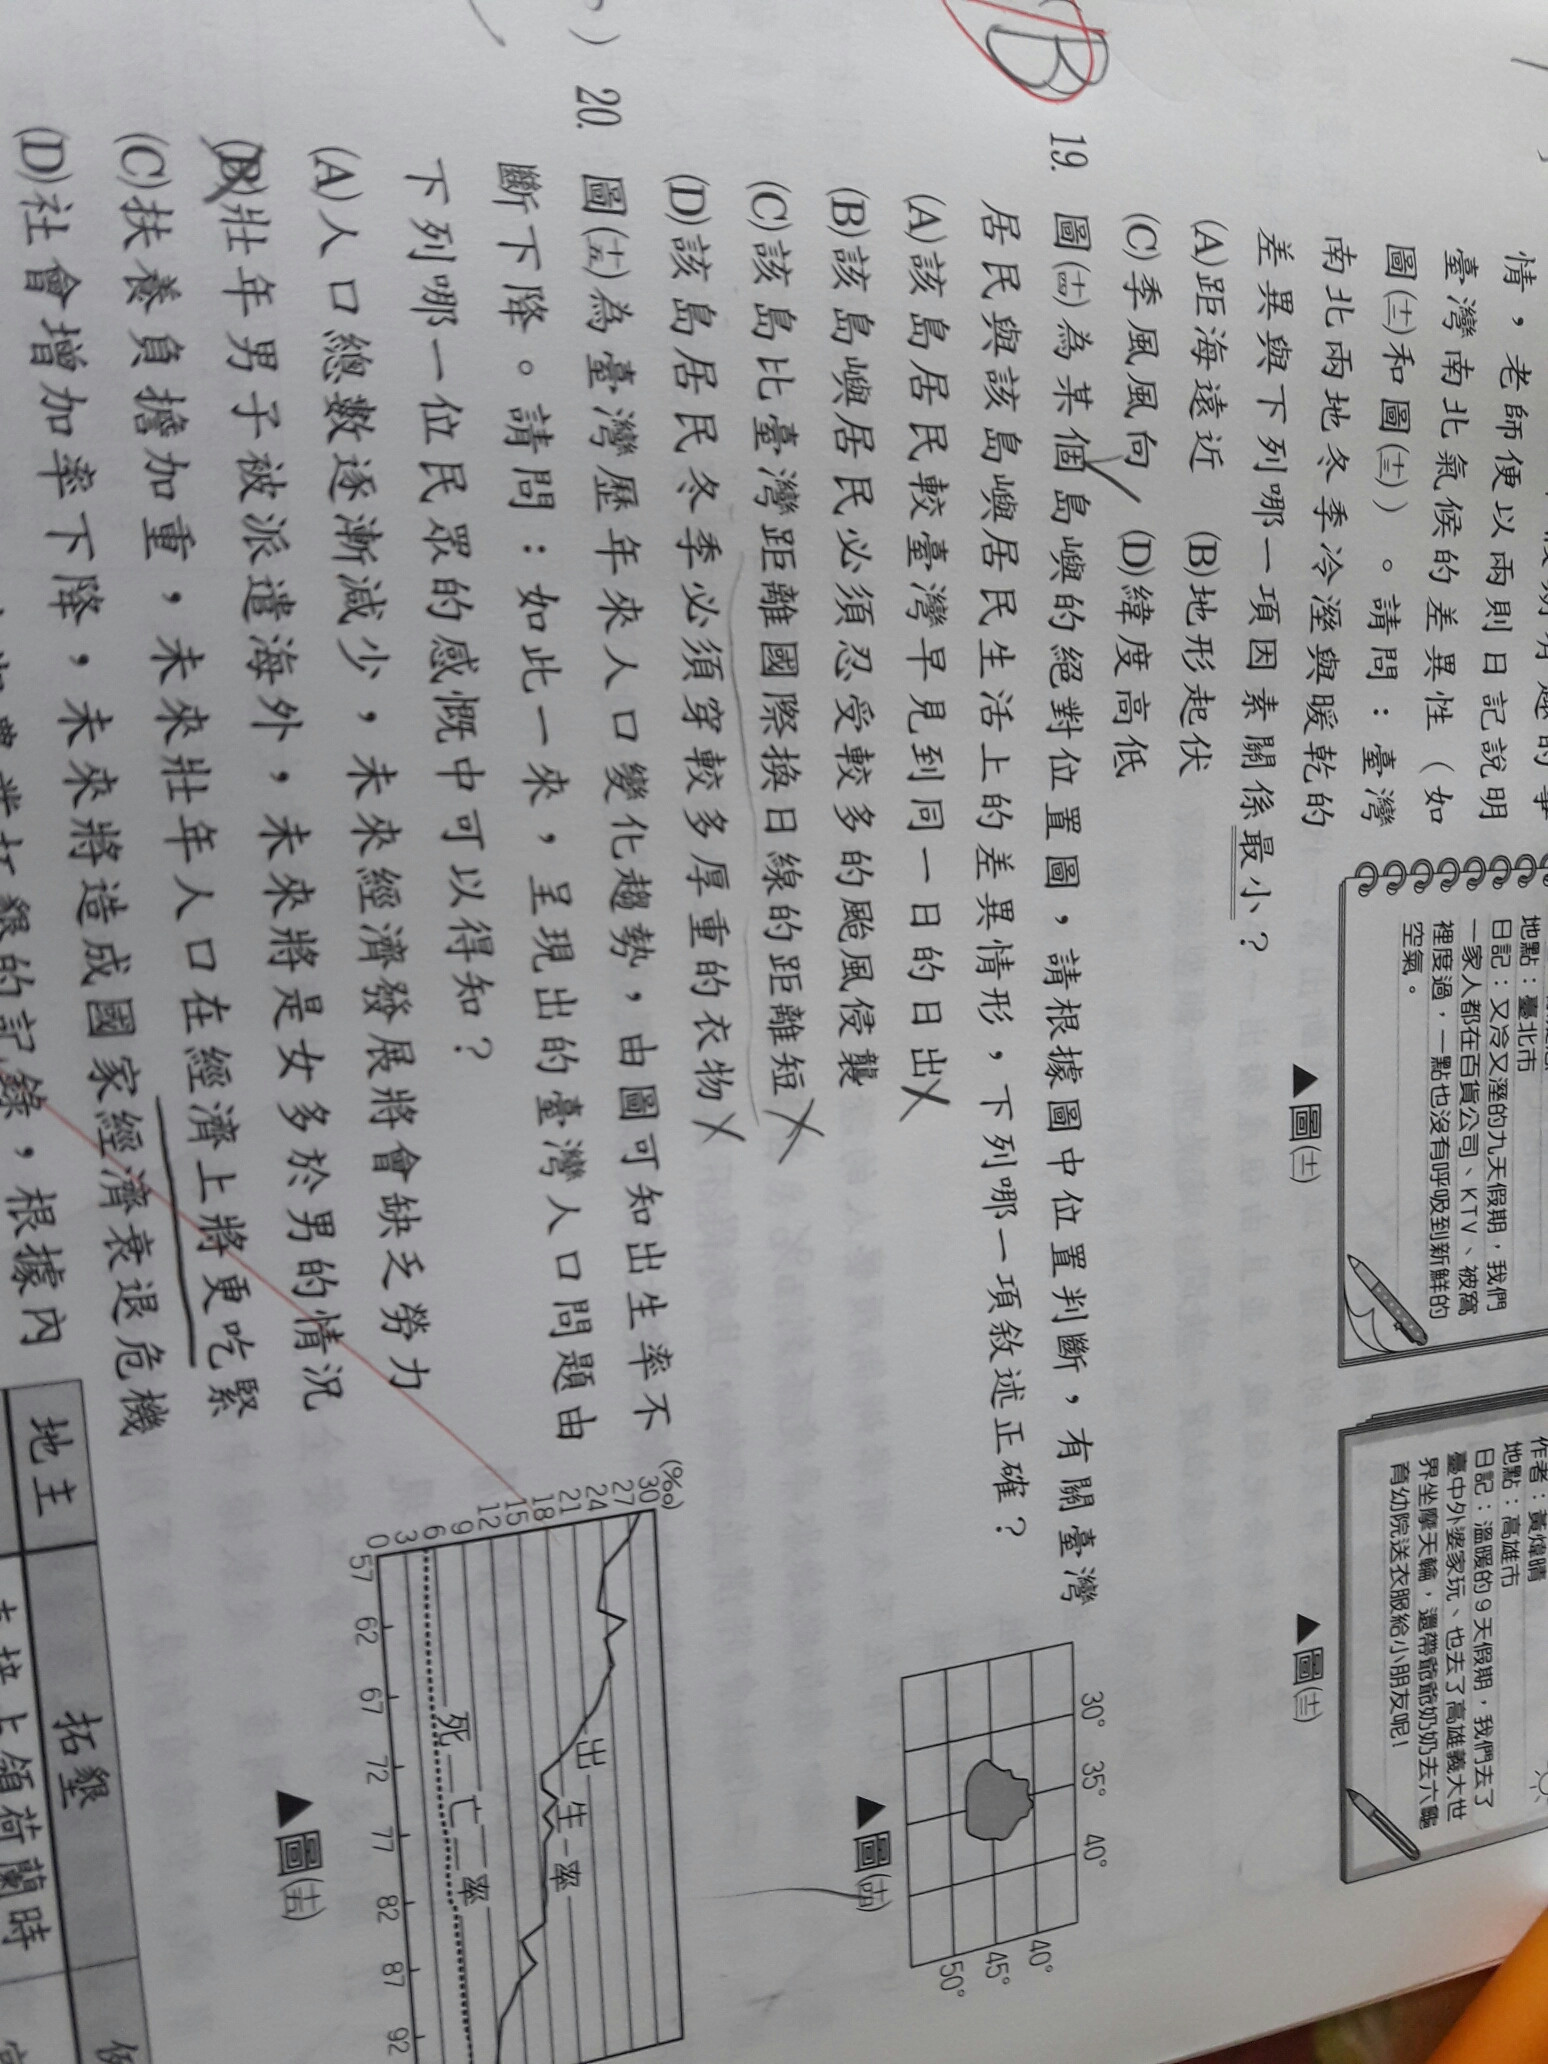 情，老師便以兩則日記說明
臺灣南北氣候的差異性（如
圖(十二)和圖(十三)）。請問：臺灣
南北兩地冬季冷溼與暖乾的
差異與下列哪一項因素關係最小？
(A)距海遠近 (B)地形起伏
(C)季風風向 (D)緯度高低
地點：臺北市
日記：又冷又溼的九天假期，我們
一家人都在百貨公司、KTV、被窩
裡度過，一點也沒有呼吸到新鮮的
空氣。
▲圖(十二)
作者：黃煒晴
地點：高雄市
日記：溫暖的９天假期，我們去了
臺中外婆家玩、也去了高雄義大世
界坐摩天輪，還帶爺爺奶奶去六龜
育幼院送衣服給小朋友呢！
▲圖(十三)
B
19. 圖(十四)為某個島嶼的絕對位置圖，請根據圖中位置判斷，有關臺灣
居民與該島嶼居民生活上的差異情形，下列哪一項敘述正確？
(A)該島居民較臺灣早見到同一日的日出
(B)該島嶼居民必須忍受較多的颱風侵襲
(C)該島比臺灣距離國際換日線的距離短
(D)該島居民冬季必須穿較多厚重的衣物
30° 35° 40°
40°
45°
50°
▲圖(十四)
20. 圖(十五)為臺灣歷年來人口變化趨勢，由圖可知出生率不
斷下降。請問：如此一來，呈現出的臺灣人口問題由
下列哪一位民眾的感慨中可以得知？
(A)人口總數逐漸減少，未來經濟發展將會缺乏勞力
(B)壯年男子被派遣海外，未來將是女多於男的情況
(C)扶養負擔加重，未來壯年人口在經濟上將更吃緊
(D)社會增加率下降，未來將造成國家經濟衰退危機
(‰)
30
27
24
21
18
15
12
9
6
3
0
57 62 67 72 77 82 87 92
出生率
死亡率
▲圖(十五)
的記錄，根據內
地主 拓墾
上領荷蘭時